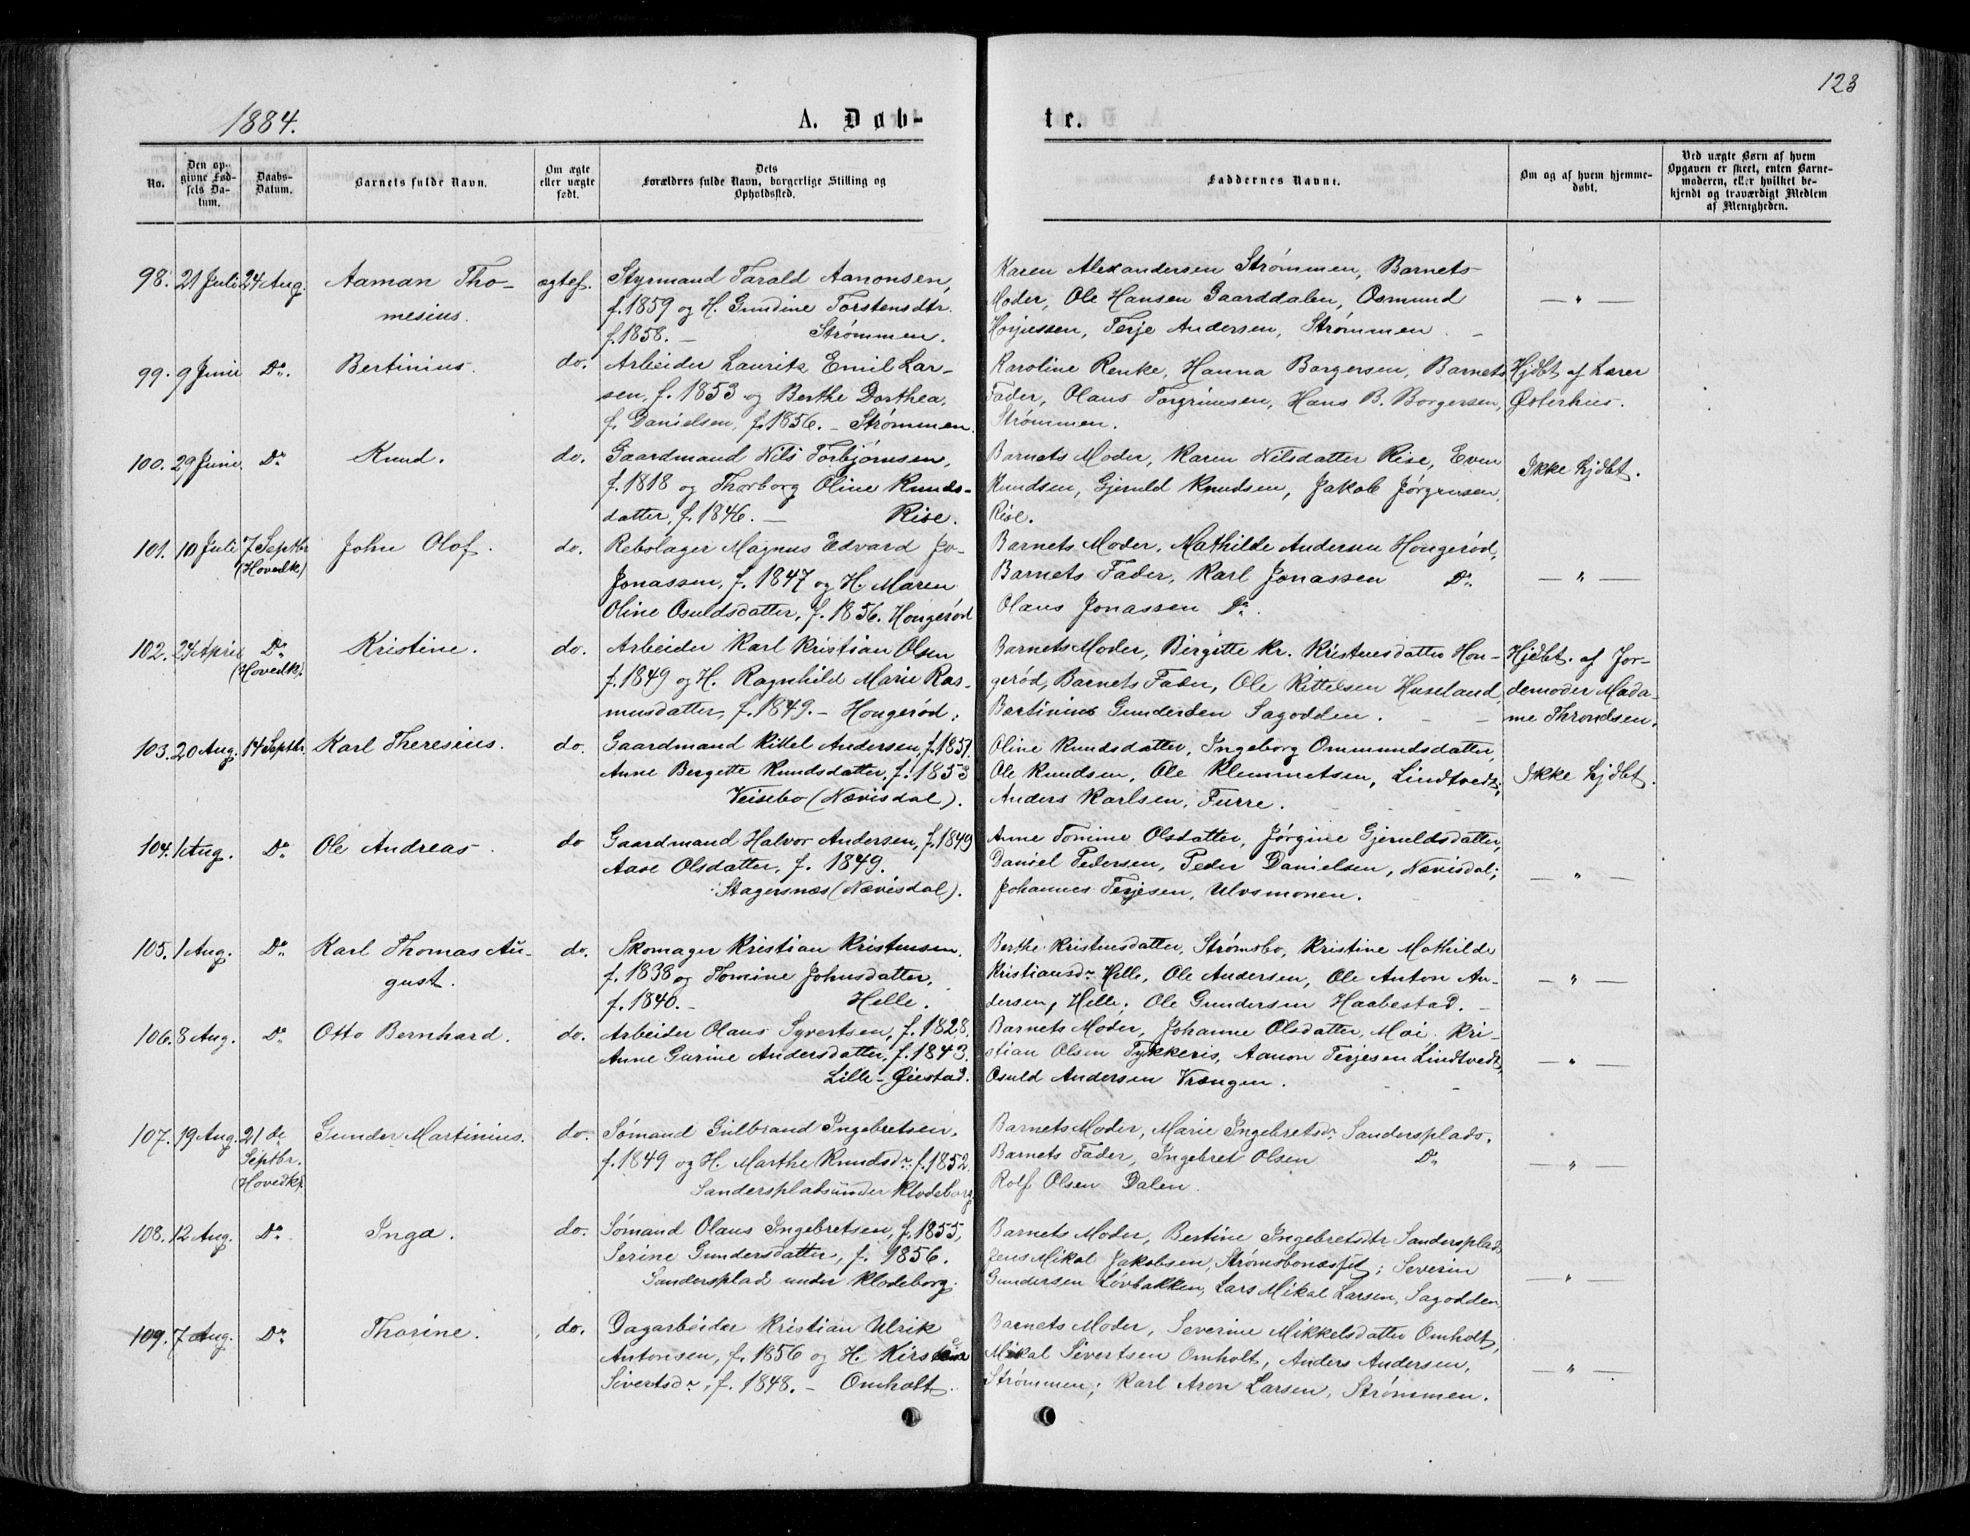 1884.
A. Døb-
te.
123
No.
Den op-
givne Fød-
sels Da-
tum.
Daabs-
Datum.
Barnets fulde Navn.
Om ægte
eller uægte
født.
Dets
Forældres fulde Navn, borgerlige Stilling og
Opholdssted.
Faddernes Navne.
Om og af hvem hjemme-
døbt.
Ved uægte Børn af hvem
Opgaven er skeet, enten Barne-
moderen, eller hvilket be-
kjendt og troværdigt Medlem
af Menigheden.
98. 21 Juli 24 Aug. Aaman Tho- ægtef. Styrmand Tarald Aanonsen, Karen Alexandersen Strømmen, Barnets
mesius. f. 1859 og H. Gundine Torstensdtr. Moder, Ole Hansen Gaarddalen, Osmund — " —
f. 1858. — Strømmen. Terje Andersen, Strømmen.
99. 9 Juni Do. Bertinius. do. Arbeider Lauritz Emil Lar- Karoline Renke, Hanna Borgersen, Barnets Hjdbt af Lærer
sen, f. 1853 og Berthe Dorthea, Fader, Olaus Torgrimsen, Hans B. Borgersen, Østerhus.
f. Danielsen, f. 1856. — Strømmen. Strømmen.
100. 29 Juni Do Knud. do. Gaardmand Nils Torbjørnsen, Barnets Moder, Karen Nilsdatter Rise, Even Ikke hjdbt.
f. 1818 og Thorborg Oline Knuds- Knudsen, Gjeruld Knudsen, Jakob Jørgensen,
datter, f. 1846. — Rise. Rise.
101. 10 Juli 7 Septbr John Olof. do. Rebslager Magnus Edvard Jo- Barnets Moder, Mathilde Andersen Hongerød,
(Hovedk.) Jonassen, f. 1847 og H. Maren Barnets Fader, Karl Jonassen Do — " —
Oline Osuldsdatter, f. 1856. Hongerød Olaus Jonassen Do.
102. 24 April Do Kristine. do. Arbeider Karl Kristian Olsen Barnets Moder, Birgitte Kr. Kristensdatter Hon- Hjdbt. af Jor-
(Hovedk). f. 1849 og H. Ragnhild Marie Ras- gerød, Barnets Fader, Ole Kittelsen Huseland, demoder Mada-
musdatter, f. 1849. — Hongerød. Bertinius Gundersen Sagodden. me Throndsen.
103. 20 Aug. 14 Septbr. Karl Theresius. do. Gaardmand Kittel Andersen, f. 1851. Oline Knudsdatter, Ingeborg Ommundsdatter,
Anne Bergitte Knudsdatter, f. 1853 Ole Knudsen, Ole Klemmetsen, Lindtvedt; Ikke hjdbt.
Veisebo (Nævisdal). Anders Karlsen, Furre.
104. 1 Aug. Do Ole Andreas. do Gaardmand Halvor Andersen, f. 1849 Anne Tomine Olsdatter, Jørgine Gjeruldsdatter,
Aase Olsdatter, f. 1849. Daniel Pedersen, Peder Danielsen, Nævisdal; — " —
Stagersnæs (Nævisdal). Johannes Terjesen, Ulvsmonen.
105. 1 Aug. Do Karl Thomas Au- do. Skomager Kristian Kristensen, Berthe Kristensdatter, Strømsbo, Kristine Mathilde
gust. f. 1838 og Tomine Johnsdatter, Kristiansdr Helle, Ole Andersen, Ole Anton An- — " —
f. 1840. — Helle. dersen, Helle; Ole Gundersen Haabestad.
106. 8 Aug. Do Otto Bernhard. do. Arbeider Olaus Syvertsen, f. 1828. Barnets Moder, Johanne Olsdatter, Moi. Kri-
Anne Gurine Andersdatter, f. 1843. stian Olsen Tykkeris, Aanon Terjesen Lindtvedt, — " —
Lille-Øiestad. Osuld Andersen Vrængen.
107. 19 Aug. 21de Gunder Martinius. do. Sømand Gulbrand Ingebretsen, Barnets Moder, Marie Ingebretsdr. Sandersplads.
Septbr. f. 1849 og H. Marthe Knudsdr. f. 1852. Barnets Fader, Ingebret Olsen Do — " —
(Hovedk). Sandersplads under Klodeborg Rolf Olsen Dalen.
108. 12 Aug. Do Inga. do. Sømand Olaus Ingebretsen, f. 1855, Barnets Moder, Bertine Ingebretsdtr Sandersplads
Serine Gundersdatter, f. 1856. Jens Mikal Jakobsen, Strømsbonæsset; Severin
Sandersplad under Klodeborg. Gundersen Løvbakken, Lars Mikal Larsen, Sagodden — " —
109. 7 Aug. Do Thorine. do. Dagarbeider Kristian Ulrik Barnets Moder, Severine Mikkelsdatter Omholt,
Antonsen, f. 1856 og H. Mikal Sivertsen Omholt, Anders Andersen, — " —
Sivertsdr., f. 1848. — Omholt. Strømmen; Karl Aron Larsen, Strømmen.